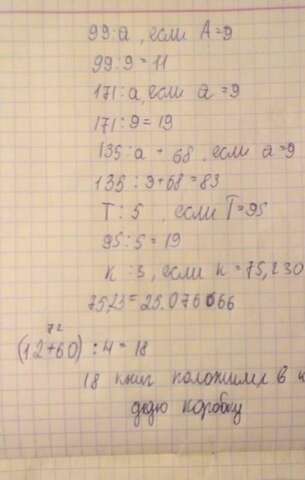 99:а, если А=9
99:9=11
171:а, если а=9
171:9=19
135:а + 68, если а=9
135:9+68=83
Т:5, если Т=95
95:5=19
к:3, если к=75,230
75,23=25.076666
72
(12+60):4=18
18 книг положили в
дую коробку